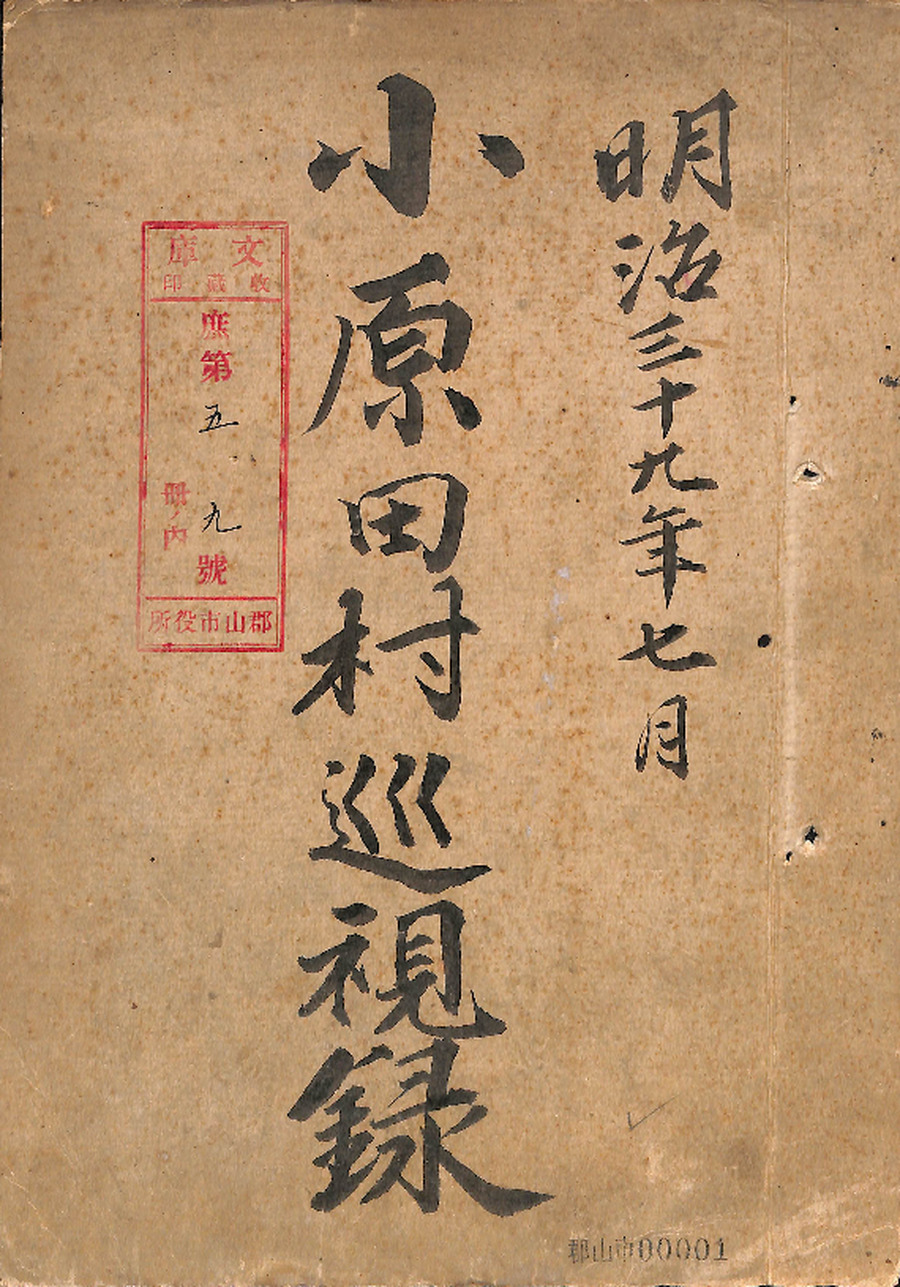 明治三十九年七月
小原田村巡視録
文庫
收藏印
庶第五、九號
冊ノ内
郡山市役所
郡山市00001